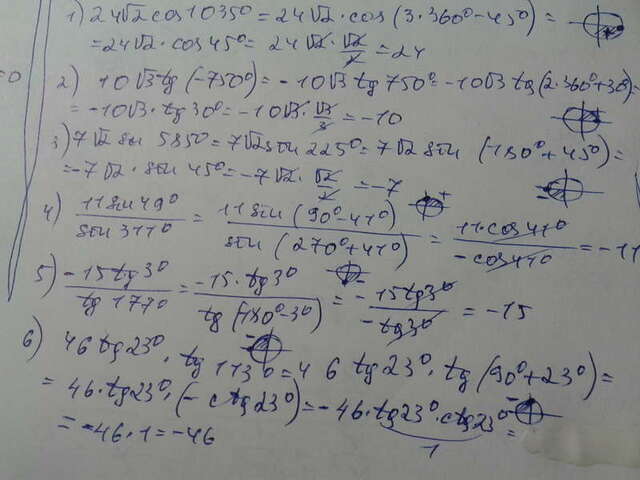 1) 24√2 cos 1035° = 24√2 · cos (3·360° - 45°) =
= 24√2 · cos 45° = 24√2 · √2/2 = 24
=0
2) 10√3 tg (-750°) = -10√3 tg 750° = -10√3 tg (2·360° + 30°) =
= -10√3 · tg 30° = -10√3 · √3/3 = -10
3) 7√2 sin 585° = 7√2 sin 225° = 7√2 sin (180° + 45°) =
= -7√2 · sin 45° = -7√2 · √2/2 = -7
4) 11 sin 49° / sin 311° = 11 sin (90° - 41°) / sin (270° + 41°) = 11 · cos 41° / -cos 41° = -11
5) -15 tg 3° / tg 177° = -15 · tg 3° / tg (180° - 3°) = - 15 tg 3° / - tg 3° = -15
6) 46 tg 23° · tg 113° = 46 tg 23° · tg (90° + 23°) =
= 46 · tg 23° · (- ctg 23°) = -46 · tg 23° · ctg 23° =
1
= -46 · 1 = -46